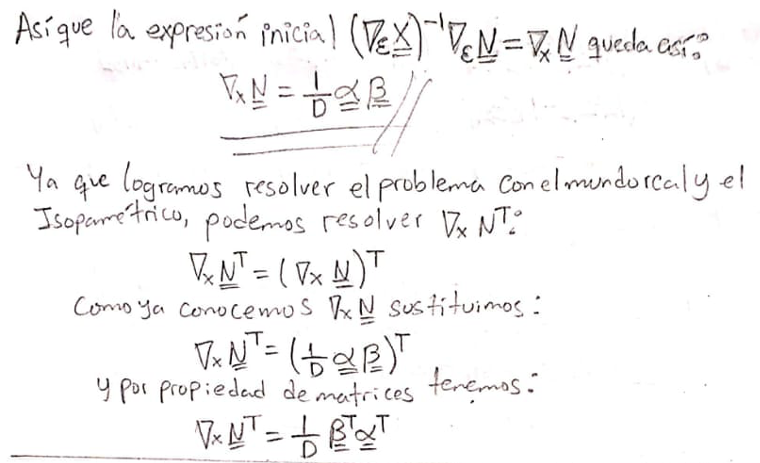 Así que la expresión inicial (∇ε X)⁻¹ ∇ε N = ∇x N queda así:
∇x N = 1/D α β //
Ya que logramos resolver el problema con el mundo real y el
Isopamétrico, podemos resolver ∇x Nᵀ:
∇x Nᵀ = (∇x N)ᵀ
Como ya conocemos ∇x N sustituimos:
∇x Nᵀ = (1/D α β)ᵀ
y por propiedad de matrices tenemos:
∇x Nᵀ = 1/D βᵀ αᵀ